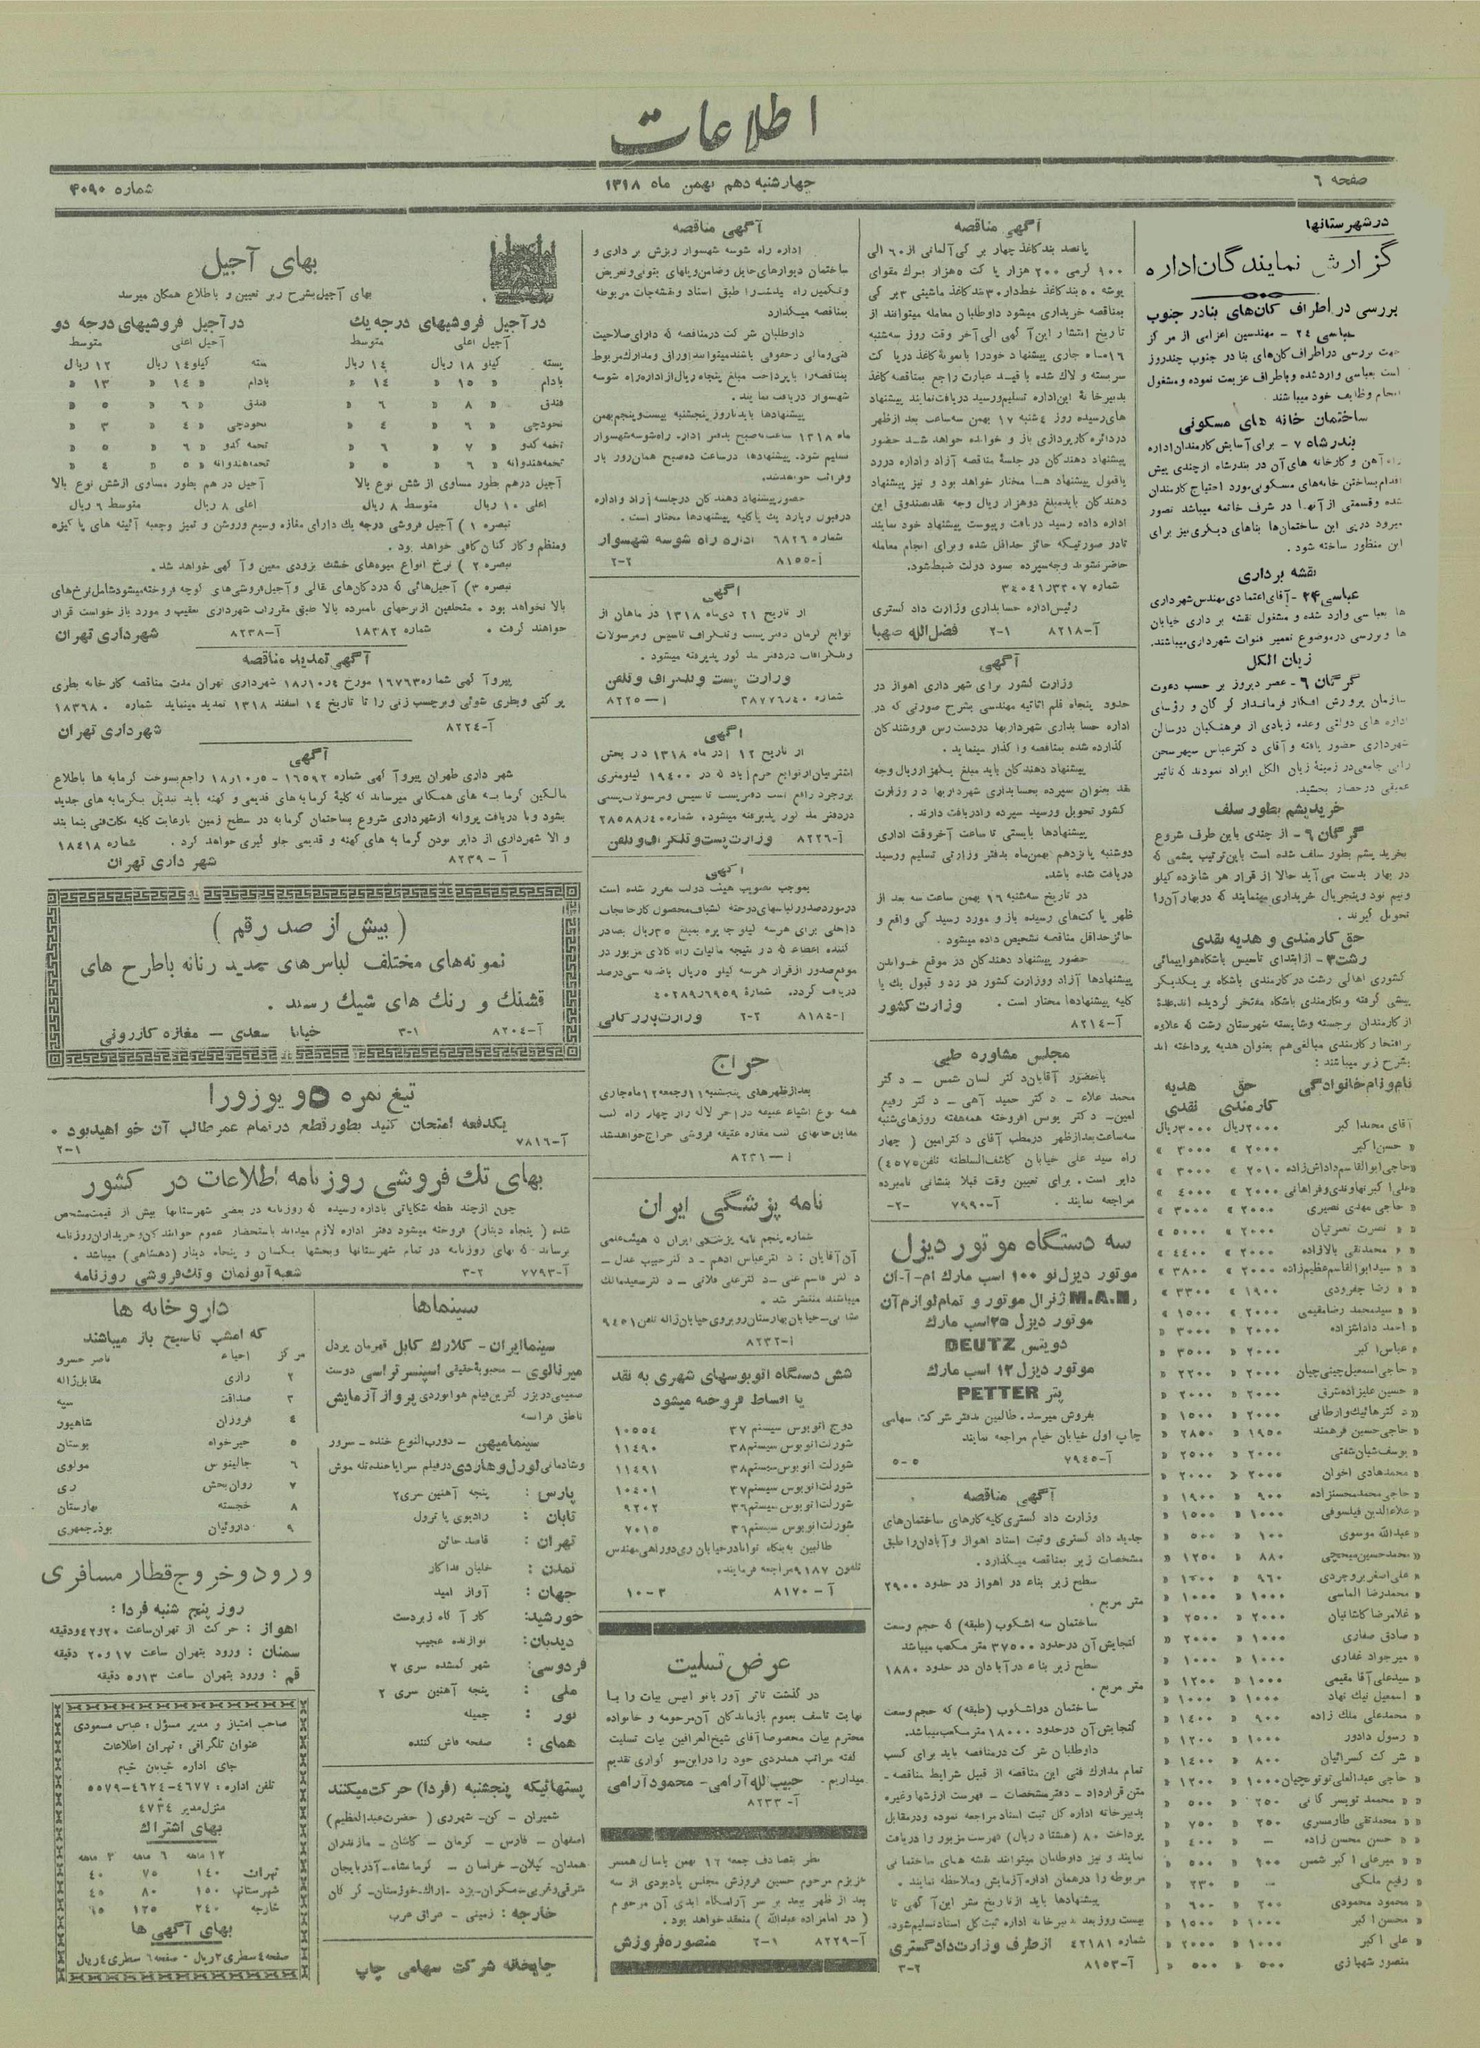 اطلاعات
صفحه ۶
چهارشنبه دهم بهمن ماه ۱۳۱۸
شماره ۴۰۹۰
در شهرستانها
گزارش نمایندگان اداره
بررسی در اطراف کان‌های بنادر جنوب
عباسی ۲۴ - مهندسین اعزامی از مرکز
جهت بررسی در اطراف کان‌های بنادر جنوب چندروز
است بعباسی وارد شده و باطراف عزیمت نموده و مشغول
انجام وظایف خود میباشند
ساختمان خانه های مسکونی
بندرشاه ۷ - برای آسایش کارمندان اداره
راه آهن و کارخانه های آن در بندرشاه از چندی پیش
اقدام بساختن خانه‌های مسکونی مورد احتیاج کارمندان
شده و قسمتی از آنها در شرف خاتمه میباشد تصور
میرود در پی این ساختمان‌ها بناهای دیگری نیز برای
این منظور ساخته شود .
نقشه برداری
عباسی ۲۴ - آقای اعتمادی مهندس شهرداری
ها بعباسی وارد شده و مشغول نقشه برداری خیابان
ها و بررسی در موضوع تعمیر قنوات شهرداری میباشند.
زیان الکل
گرگان ۶ - عصر دیروز بر حسب دعوت
سازمان پرورش افکار فرماندار گرگان و رؤسای
اداره های دولتی و عده زیادی از فرهنگیان در سالن
شهرداری حضور یافته و آقای دکتر عباس سپهر سخن
رانی جامعی در زمینهٔ زیان الکل ایراد نمودند که تاثیر
عمیقی در حضار بخشید.
خرید پشم بطور سلف
گرگان ۶ - از چندی باین طرف شروع
بخرید پشم بطور سلف شده است باین ترتیب پشمی که
در بهار بدست می‌آید حالا از قرار هر شانزده کیلو
و نیم نود و پنج ریال خریداری مینمایند که در بهار آن را
تحویل گیرند .
حق کارمندی و هدیه نقدی
رشت ۳ - از ابتدای تاسیس باشگاه هواپیمائی
کشوری اهالی رشت در کارمندی باشگاه بر یکدیگر
پیشی گرفته و بکارمندی باشگاه مفتخر گردیده اند عدهٔ
از کارمندان برجسته و شایسته شهرستان رشت که علاوه
بر افتخار کارمندی مبالغی هم بعنوان هدیه پرداخته اند
بشرح زیر میباشند :
نام و نام خانوادگی حق کارمندی هدیه نقدی
آقای محمد اکبر ۲۰۰۰ریال ۳۰۰۰ریال
« حسن اکبر ۲۰۰۰ » ۳۰۰۰ »
« حاجی ابوالقاسم داداش زاده ۲۰۱۰ » ۳۰۰۰ »
« علی اکبر نهاوندی و فراهانی ۲۰۰۰ » ۴۰۰۰ »
« حاجی مهدی نصیری ۲۰۰۰ » ۳۰۰۰ »
« نصرت نصرتیان ۲۰۰۰ » ۵۰۰۰ »
« محمدتقی بالازاده ۲۰۰۰ » ۴۴۰۰ »
« سید ابوالقاسم عظیم زاده ۲۰۰۰ » ۳۸۰۰ »
« رضا چفرودی ۱۹۰۰ » ۳۳۰۰ »
« سید محمد رضا مقیمی ۲۰۰۰ » ۱۵۰۰ »
« احمد داداش زاده ۲۰۰۰ » ۳۰۰۰ »
« عباس اکبر ۲۰۰۰ » ۳۵۰۰ »
« حاجی اسمعیل چینی چیان ۲۰۰۰ » ۲۲۰۰ »
« حسین علیزاده شرق ۲۰۰۰ » ۲۰۰۰ »
« دکتر هائیک وارطانی ۲۰۰۰ » ۱۵۰۰ »
« حاجی حسین فرهمند ۱۹۵۰ » ۲۸۵۰ »
« یوسف شبان شفتی ۲۰۰۰ » ۲۵۰۰ »
« محمدهادی اخوان ۲۰۰۰ » ۲۰۰۰ »
« حاجی محمد محسنزاده ۹۰۰ » ۱۹۰۰ »
« علاءالدین فیلسوفی ۱۰۰۰ » ۱۵۰۰ »
« عبدالله موسوی ۱۰۰ » ۵۰۰ »
« محمدحسین میخچی ۸۸۰ » ۱۲۵۰ »
« علی اصغر بروجردی ۹۶۰ » ۱۴۰۰ »
« محمدرضا الماسی ۱۰۰۰ » ۱۰۰۰ »
« غلامرضا کاشانیان ۲۰۰۰ » ۲۵۰۰ »
« صادق صفاری ۱۰۰۰ » ۲۰۰۰ »
« میرجواد غفاری ۱۰۰۰ » ۱۰۰۰ »
« سیدعلی آقا مقیمی ۱۰۰۰ » ۱۲۰۰ »
« اسمعیل نیک نهاد ۱۰۰۰ » ۱۰۰۰ »
« محمدعلی ملک زاده ۹۰۰ » ۱۴۰۰ »
« رسول دادور ۱۰۰۰ » ۱۲۰۰ »
« شرکت کسرائیان ۸۰۰ » ۱۴۰۰ »
« حاجی عبدالعلی توتونچیان ۱۰۰۰ » ۱۲۰۰ »
« محمد تویسرکانی ۲۵۰ » ۵۰۰ »
« محمدتقی طارمسری ۲۵۰ » ۷۵۰ »
« حسن محسن زاده - ۴۰۰ »
« میرعلی اکبر شمس ۲۰۰ » ۵۰۰ »
« رفیع ملکی - ۲۳۰ »
« محمود محمودی ۲۰۰ » ۶۰۰ »
« محسن اکبر ۱۰۰۰ » ۱۵۰۰ »
« علی اکبر ۱۰۰۰ » ۲۰۰۰ »
منصور شهبازی ۵۰۰ » ۵۰۰ »
آگهی مناقصه
پانصد بند کاغذ چهار برگی آلمانی از ۶۰ الی
۱۰۰ گرمی ۲۰۰ هزار پاکت ۵ هزار برگ مقوای
پوشه ۵۰ بند کاغذ خط‌دار ۳۰ بند کاغذ ماشینی ۳ برگی
بمناقصه خریداری میشود داوطلبان معامله میتوانند از
تاریخ انتشار این آگهی الی آخر وقت روز سه‌شنبه
۱۶ماه جاری پیشنهاد خود را با نمونهٔ کاغذ در پاکت
سربسته و لاک شده با قید عبارت راجع بمناقصه کاغذ
بدبیرخانهٔ این اداره تسلیم و رسید دریافت نمایند پیشنهاد
های رسیده روز ۴شنبه ۱۷ بهمن سه‌ساعت بعدازظهر
در دائره کارپردازی باز و خوانده خواهد شد حضور
پیشنهاد دهندگان در جلسهٔ مناقصه آزاد و اداره در رد
یا قبول پیشنهاد ها مختار خواهد بود و نیز پیشنهاد
دهندگان باید مبلغ دو هزار ریال وجه نقد بصندوق این
اداره داده رسید دریافت و پیوست پیشنهاد خود نمایند
تا در صورتیکه حائز حداقل شده و برای انجام معامله
حاضر نشوند وجه سپرده بسود دولت ضبط شود.
شماره ۳۴۰۴۱/۳۳۰۷
رئیس اداره حسابداری وزارت دادگستری
آ-۸۲۱۸ ۲-۱ فضل‌الله صهبا
آگهی
وزارت کشور برای شهرداری اهواز در
حدود پنجاه قلم اثاثیه مهندسی بشرح صورتی که در
اداره حسابداری شهرداریها در دسترس فروشندگان
گذارده شده بمناقصه واگذار مینماید .
پیشنهاد دهندگان باید مبلغ یکهزار ریال وجه
نقد بعنوان سپرده بحسابداری شهرداریها در وزارت
کشور تحویل و رسید سپرده را دریافت دارند .
پیشنهادها بایستی تا ساعت آخر وقت اداری
دوشنبه پانزدهم بهمن‌ماه بدفتر وزارتی تسلیم و رسید
دریافت شده باشد.
در تاریخ سه‌شنبه ۱۶ بهمن ساعت سه بعد از
ظهر پاکت‌های رسیده باز و مورد رسیدگی واقع و
حائز حداقل مناقصه تشخیص داده میشود .
حضور پیشنهاد دهندگان در موقع خواندن
پیشنهادها آزاد و وزارت کشور در رد و قبول یک یا
کلیه پیشنهادها مختار است . وزارت کشور
آ-۸۲۱۴
مجلس مشاوره طبی
باحضور آقایان دکتر لسان شمس - دکتر
محمد علاء - دکتر حمید آهی - دکتر رفیع
امین - دکتر یونس افروخته همه‌هفته روزهای شنبه
سه‌ساعت بعدازظهر در مطب آقای دکتر امین ( چهار
راه سید علی خیابان کاشف‌السلطنه تلفن ۴۵۷۵)
دایر است . برای تعیین وقت قبلا بنشانی نامبرده
مراجعه نمایند . آ-۷۹۹۰ -۲-
سه دستگاه موتور دیزل
موتور دیزل نو ۱۰۰ اسب مارک ام-آ-ان
M.A.N. ژنرال موتور و تمام لوازم آن
موتور دیزل ۲۵ اسب مارک
دویتس DEUTZ
موتور دیزل ۱۲ اسب مارک
پتر PETTER
بفروش میرسد. طالبین بدفتر شرکت سهامی
چاپ اول خیابان خیام مراجعه نمایند
آ-۷۹۴۵ ۵-۵
آگهی مناقصه
وزارت دادگستری کلیه کارهای ساختمان‌های
جدید دادگستری و ثبت اسناد اهواز و آبادان را طبق
مشخصات زیر بمناقصه میگذارد.
سطح زیر بناء در اهواز در حدود ۲۹۰۰
متر مربع .
ساختمان سه اشکوب (طبقه) که حجم وسعت
گنجایش آن در حدود ۳۷۵۰۰ متر مکعب میباشد
سطح زیر بناء در آبادان در حدود ۱۸۸۰
متر مربع .
ساختمان دو اشکوب (طبقه) که حجم وسعت
گنجایش آن در حدود ۱۸۰۰۰ متر مکعب میباشد.
داوطلبان شرکت در مناقصه باید برای کسب
تمام مدارک فنی این مناقصه از قبیل شرایط مناقصه -
متن قرارداد - دفتر مشخصات - فهرست ارزشها و غیره
بدبیرخانه اداره کل ثبت اسناد مراجعه نموده و در مقابل
پرداخت ۸۰ (هشتاد ریال) فهرست مزبور را دریافت
نمایند و نیز داوطلبان میتوانند نقشه های ساختمانی
مربوطه را در همان اداره آزمایش و ملاحظه نمایند .
پیشنهادها باید از تاریخ نشر این آگهی تا
بیست روز بعد بدبیرخانه اداره ثبت کل اسناد تسلیم شود.
شماره ۴۲۱۸۱ از طرف وزارت دادگستری
آ-۸۱۵۳ ۳-۲
آگهی مناقصه
اداره راه شوسه شهسوار ریزش برداری و
ساختمان دیوارهای حایل و ضامن و پلهای بتونی و تعریض
و تکمیل راه یکدست را طبق اسناد و نقشه‌جات مربوطه
بمناقصه میگذارد
داوطلبان شرکت در مناقصه که دارای صلاحیت
فنی و مالی و حقوقی باشند میتوانند اوراق و مدارک مربوط
بمناقصه را با پرداخت مبلغ پنجاه ریال از اداره راه شوسه
شهسوار دریافت نمایند .
پیشنهادها باید تا روز پنجشنبه بیست و پنجم بهمن
ماه ۱۳۱۸ ساعت ده صبح بدفتر اداره راه شوسه شهسوار
تسلیم شود. پیشنهادها در ساعت ده صبح همان روز باز
و قرائت خواهد شد.
حضور پیشنهاد دهندگان در جلسه آزاد و اداره
در قبول یا رد یک یا کلیه پیشنهادها مختار است .
شماره ۶۸۲۶ اداره راه شوسه شهسوار
آ-۸۱۵۵ ۲-۲
آگهی
از تاریخ ۲۱ دی‌ماه ۱۳۱۸ در ماهان از
توابع کرمان دفتر پست و تلگراف تاسیس و مرسولات
و تلگرافات در دفتر مذکور پذیرفته میشود .
وزارت پست و تلگراف و تلفن
شماره ۳۸۷۷۶/۴۰ آ-۸۲۲۵
آگهی
از تاریخ ۱۲ آذر ماه ۱۳۱۸ در بخش
اشترینان از توابع خرم‌آباد که در ۱۹۴۰۰ کیلومتری
بروجرد واقع است دفتر پست تاسیس و مرسولات پستی
در دفتر مذکور پذیرفته میشود. شماره ۲۸۵۸۸/۴۰
آ-۸۲۲۶ وزارت پست و تلگراف و تلفن
آگهی
بموجب تصویب هیئت دولت مقرر شده است
در مورد صدور لباسهای دوخته الیاف محصول کارخانجات
داخلی برای هر سه کیلو جایزه بمبلغ ۳۵ریال بصادر
کننده اعطاء که در نتیجه مالیات راه کالای مزبور در
موقع صدور از قرار هر سه کیلو ۵ ریال باضافه سی درصد
دریافت گردد. شمارهٔ ۴۰۲۸۹/۶۹۵۹
آ-۸۱۸۴ ۲-۲ وزارت بازرگانی
حراج
بعدازظهرهای پنجشنبه ۱۱ و جمعه ۱۲ ماه جاری
همه نوع اشیاء عتیقه در آخر لاله‌زار چهار راه کنت
مقابل خانهای کنت مغازه عتیقه فروشی حراج خواهد شد
آ-۸۲۳۱
نامه پزشگی ایران
شماره پنجم نامه پزشکی ایران که هیئت علمی
آن آقایان : دکتر عباس ادهم - دکتر حبیب عدل -
دکتر قاسم غنی - دکتر علی فلاتی - دکتر سعید مالک
میباشند منتشر شد .
نشانی - خیابان بهارستان روبروی خیابان ژاله تلفن ۹۴۵۱
آ-۸۲۳۲
شش دستگاه اتوبوسهای شهری به نقد
یا اقساط فروخته میشود
دوج اتوبوس سیستم ۳۷ ۱۰۵۵۴
شورلت اتوبوس سیستم ۳۸ ۱۱۴۹۰
شورلت اتوبوس سیستم ۳۸ ۱۱۴۹۱
شورلت اتوبوس سیستم ۳۷ ۱۰۴۰۱
شورلت اتوبوس سیستم ۳۶ ۹۲۰۲
شورلت اتوبوس سیستم ۳۶ ۷۰۱۵
طالبین به بنگاه توانا در خیابان ری دوراهی مهندس
تلفون ۹۱۸۷ مراجعه فرمایند.
آ - ۸۱۷۰ ۱۰-۳
عرض تسلیت
درگذشت تاثر آور بانو انیس بیات را با
نهایت تاسف بعموم بازماندگان آن مرحومه و خانواده
محترم بیات مخصوصا آقای شیخ‌العراقین بیات تسلیت
گفته مراتب همدردی خود را در این سوگواری تقدیم
میداریم. حبیب‌الله آرامی - محمود آرامی
آ-۸۲۳۳
نظر بتصادف جمعه ۱۲ بهمن باسال همسر
عزیزم مرحوم حسین فروزش مجلس یادبودی از سه
بعد از ظهر ببعد بر سر آرامگاه ابدی آن مرحوم
( در امامزاده عبدالله ) منعقد خواهد بود .
آ-۸۲۲۹ ۲-۱ منصوره فروزش
بهای آجیل
بهای آجیل بشرح زیر تعیین و باطلاع همگان میرسد
در آجیل فروشیهای درجه یک
آجیل اعلی متوسط
پسته کیلو ۱۸ ریال ۱۴ ریال
بادام » ۱۵ » ۱۴ »
فندق » ۸ » ۶ »
نخودچی » ۶ » ۴ »
تخمه کدو » ۷ » ۶ »
تخمه هندوانه » ۶ » ۵ »
آجیل درهم بطور مساوی از شش نوع بالا
اعلی ۱۰ ریال متوسط ۸ ریال
در آجیل فروشیهای درجه دو
آجیل اعلی متوسط
پسته کیلو ۱۴ ریال ۱۲ ریال
بادام » ۱۴ » ۱۳ »
فندق » ۶ » ۵ »
نخودچی » ۴ » ۳ »
تخمه کدو » ۶ » ۵ »
تخمه هندوانه » ۵ » ۴ »
آجیل درهم بطور مساوی از شش نوع بالا
اعلی ۸ ریال متوسط ۶ ریال
تبصره ۱) آجیل فروشی درجه یک دارای مغازه وسیع و روشن و تمیز و جعبه آئینه های پاکیزه
و منظم و کارکنان کافی خواهد بود .
تبصره ۲) نرخ انواع میوه‌های خشک بزودی معین و آگهی خواهد شد.
تبصره ۳) آجیل‌هائی که در دکان‌های بقالی و آجیل‌فروشی‌های کوچه فروخته میشود شامل نرخ‌های
بالا نخواهد بود . متخلفین از نرخهای نامبرده بالا طبق مقررات شهرداری تعقیب و مورد بازخواست قرار
خواهند گرفت . شماره ۱۸۳۸۲ آ-۸۲۳۸ شهرداری تهران
آگهی تمدید مناقصه
پیرو آگهی شماره ۱۶۷۶۳ مورخ ۱۸/۱۰/۴ شهرداری تهران مدت مناقصه کارخانه بطری
پرکنی و بطری شوئی و برچسب زنی را تا تاریخ ۱۴ اسفند ۱۳۱۸ تمدید مینماید شماره ۱۸۳۶۸۰
آ-۸۲۲۴ شهرداری تهران
آگهی
شهرداری طهران پیرو آگهی شماره ۱۶۵۹۲ - ۱۸/۱۰/۵ راجع بسوخت گرمابه ها باطلاع
مالکین گرمابه های همگانی میرساند که کلیهٔ گرمابه‌های قدیمی و کهنه باید تبدیل بگرمابه های جدید
بشود و با دریافت پروانه از شهرداری شروع بساختمان گرمابه در سطح زمین با رعایت کلیه نکات فنی بنمایند
و الا شهرداری از دایر بودن گرمابه های کهنه و قدیمی جلوگیری خواهد کرد . شماره ۱۸۴۱۸
آ-۸۲۳۹ شهرداری تهران
( بیش از صد رقم )
نمونه‌های مختلف لباس‌های جدید زنانه با طرح های
قشنگ و رنگ های شیک رسید .
آ-۸۲۰۴ ۳-۱ خیابان سعدی - مغازه کازرونی
تیغ نمره ۵ ویوزورا
یکدفعه امتحان کنید بطور قطع در تمام عمر طالب آن خواهید بود .
آ-۷۸۱۶ ۲-۱
بهای تک فروشی روزنامه اطلاعات در کشور
چون از چند نقطه شکایاتی باداره رسیده که روزنامه در بعضی شهرستانها بیش از قیمت مشخص
شده ( پنجاه دینار) فروخته میشود دفتر اداره لازم میداند باستحضار عموم خوانندگان و خریداران روزنامه
برساند که بهای روزنامه در تمام شهرستانها و بخشها یکسان و پنجاه دینار (دهشاهی) میباشد .
آ-۷۷۹۳ ۳-۲ شعبه آبونمان و تک فروشی روزنامه
سینماها
سینما ایران - کلارک گابل قهرمان پردل
میرنالوی - محبوبهٔ حقیقی اسپنسر تراسی دوست
صمیمی در بزرگترین فیلم هوانوردی پرواز آزمایش
ناطق فرانسه
سینما میهن - دو رب‌النوع خنده - سرور
و شادمانی لورل و هاردی در فیلم سراپا خنده تله موش
پارس : پنجه آهنین سری ۲
تابان : رادیوی یا ترول
تهران : قاصد خائن
تمدن : خلبان فداکار
جهان : آواز امید
خورشید : کارآگاه زبردست
دیدبان : نوازنده عجیب
فردوسی : شهر گمشده سری ۲
ملی : پنجه آهنین سری ۲
نور : جمیله
همای : صفحه فاش کننده
پستهائیکه پنجشنبه (فردا) حرکت میکنند
شمیران - کن - شهرری ( حضرت عبدالعظیم )
اصفهان - فارس - کرمان - کاشان - مازندران
همدان - گیلان - خراسان - کرمانشاه - آذربایجان
شرقی و غربی - مکران - یزد - اراک - خوزستان - گرگان
خارجه : زمینی - عراق عرب
چاپخانه شرکت سهامی چاپ
داروخانه ها
که امشب تا صبح باز میباشند
مرکز احیاء ناصرخسرو
۲ رازی مقابل ژاله
۳ صداقت سپه
۴ فروزان شاهپور
۵ خیرخواه بوستان
۶ جالینوس مولوی
۷ روان بخش ری
۸ خجسته بهارستان
۹ داروئیان بوذرجمهری
ورود و خروج قطار مسافری
روز پنج شنبه فردا :
اهواز : حرکت از تهران ساعت ۲۰ و ۴۲ دقیقه
سمنان : ورود بتهران ساعت ۱۷ و ۲۰ دقیقه
قم : ورود بتهران ساعت ۱۳ و ۵ دقیقه
صاحب امتیاز و مدیر مسؤل : عباس مسعودی
عنوان تلگرافی : تهران اطلاعات
جای اداره خیابان خیام
تلفن اداره : ۴۶۷۷-۴۶۲۴-۵۵۷۹
منزل مدیر ۴۷۳۴
بهای اشتراک
۱۲ ماهه ۶ ماهه ۳ ماهه
تهران ۱۴۰ ۷۵ ۴۰
شهرستانها ۱۵۰ ۸۰ ۴۵
خارجه ۲۴۰ ۱۲۵ ۶۵
بهای آگهی ها
صفحه ۴ سطری ۲ ریال - صفحه ۶ سطری ۴ ریال